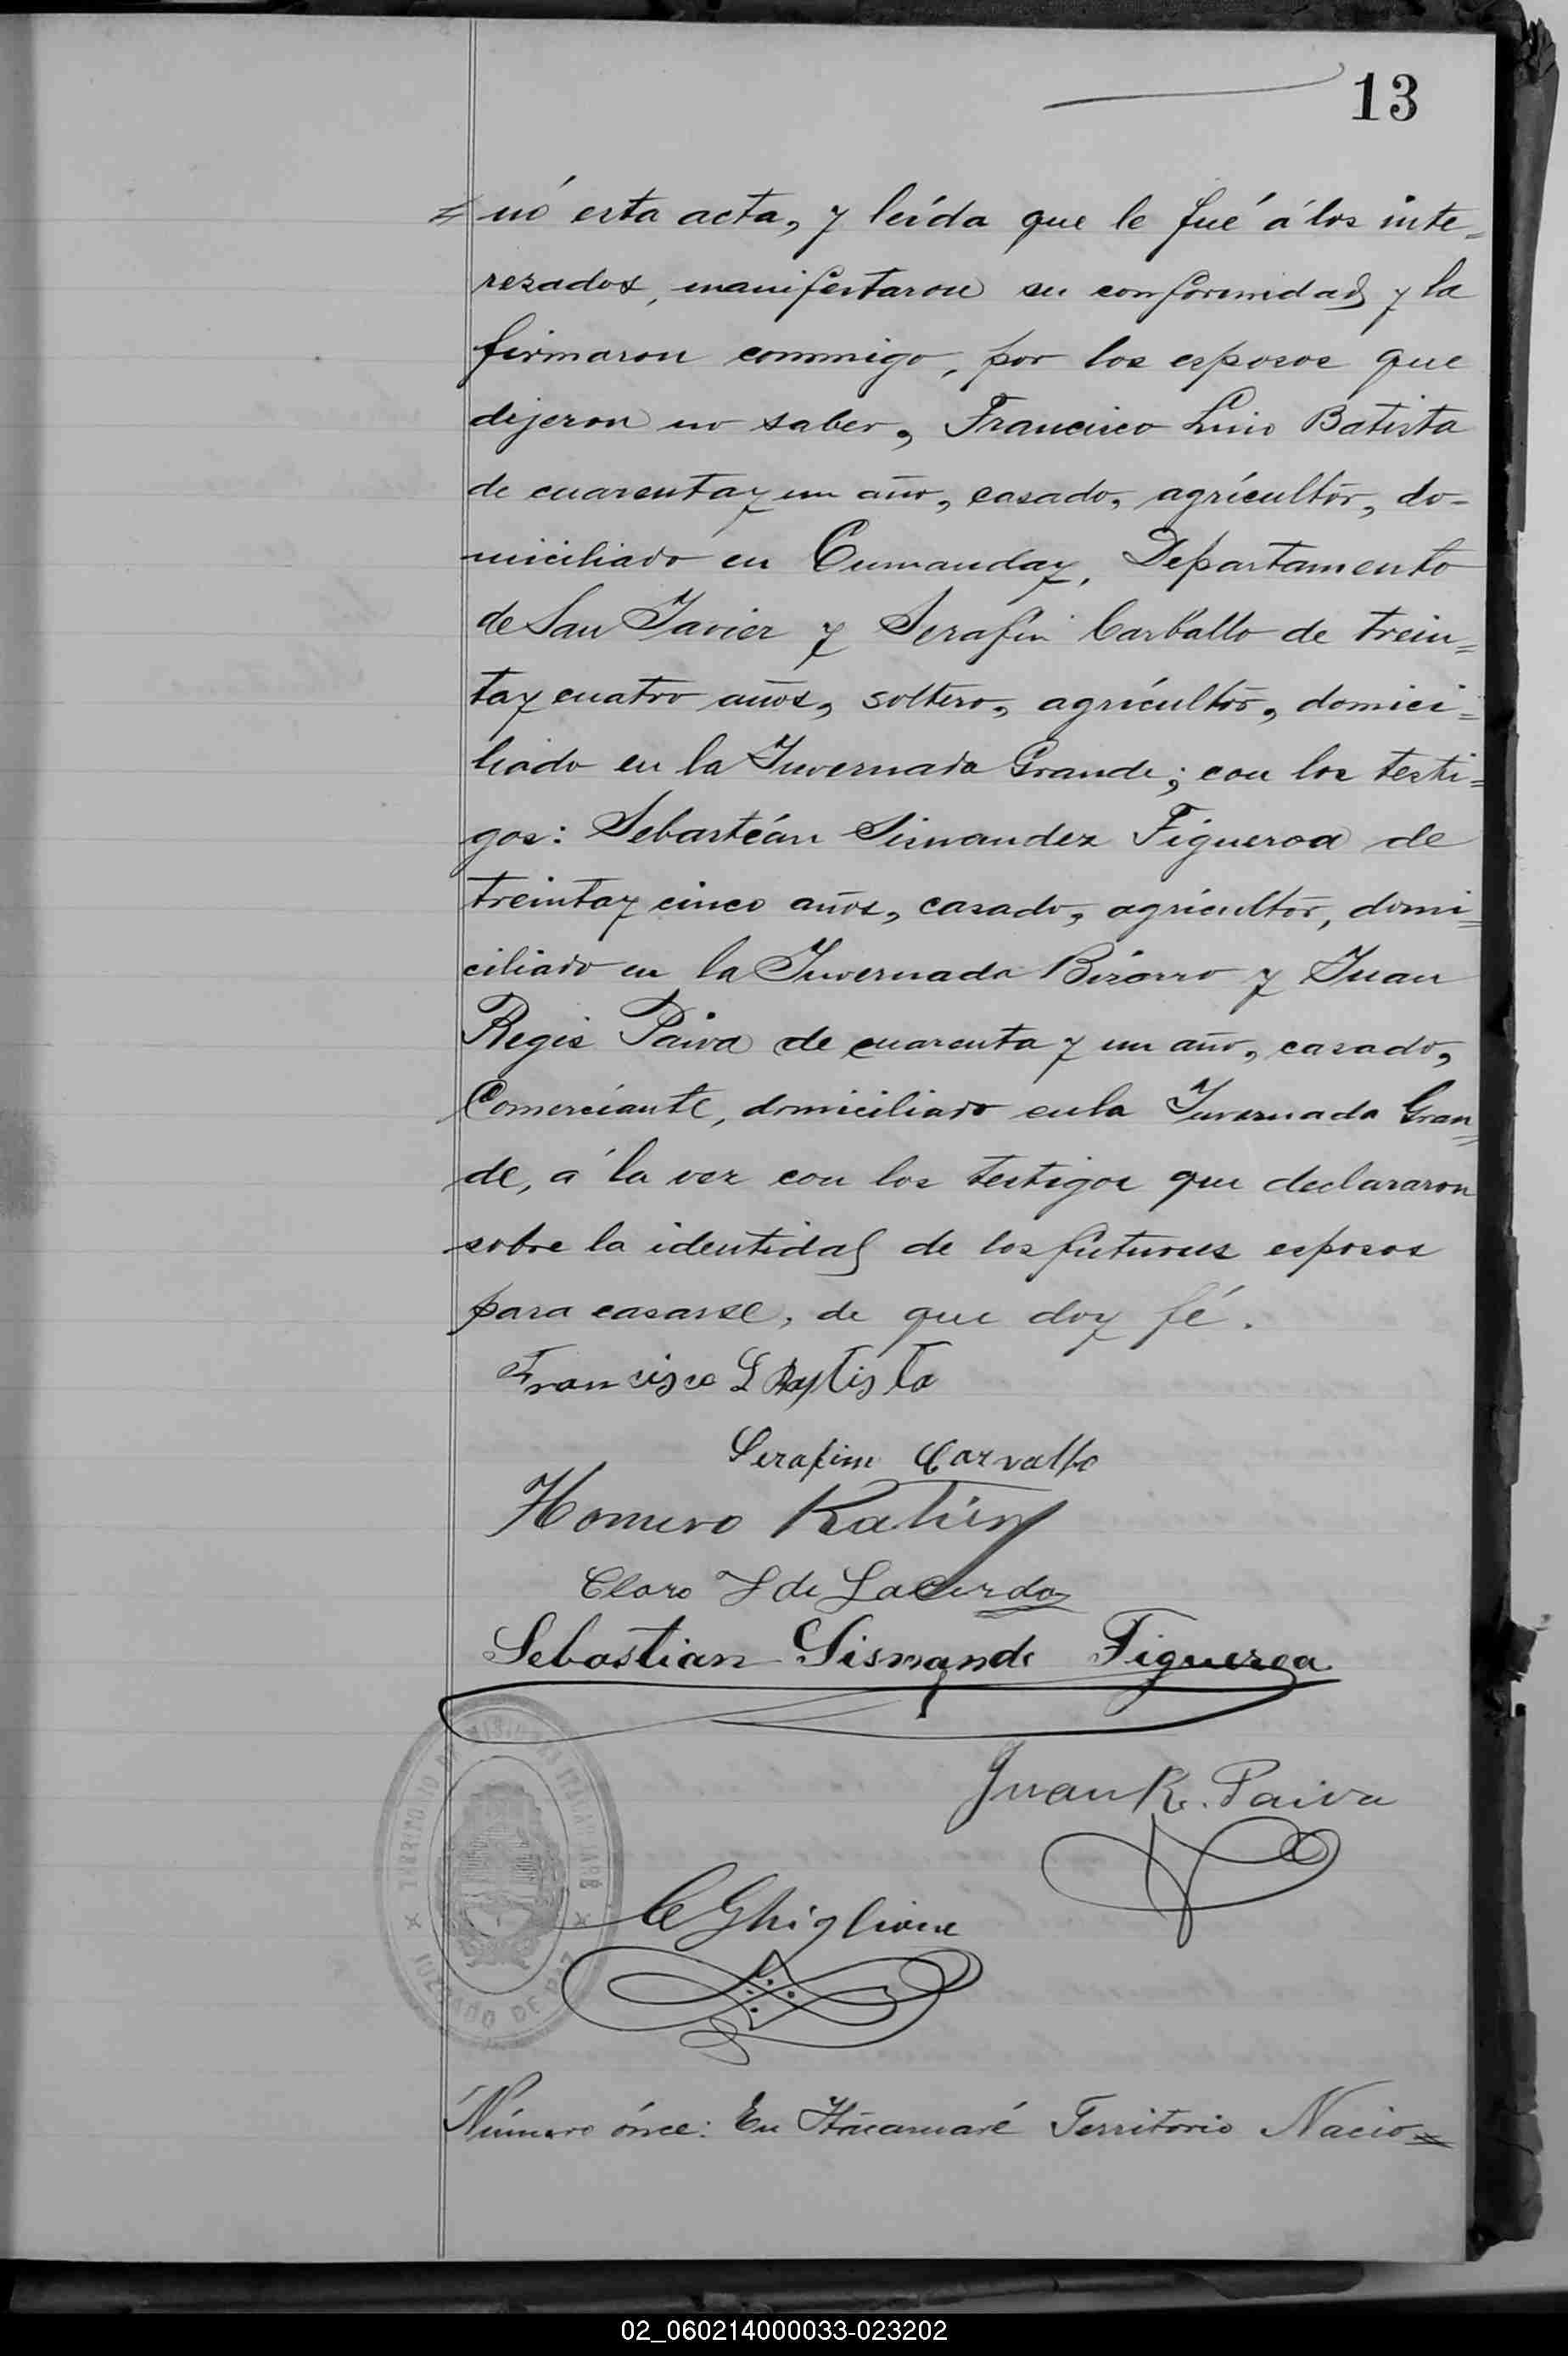 13
nó esta acta, y leída que le fué á los inte=
rezados, manifestaron su conformidad y la
firmaron conmigo, por los esposos que
dijeron no saber, Francisco Luis Batista
de cuarenta y un año, casado, agrícultór, do=
miciliado en Cumanday, Departamento
de San Javier y Serafin Carballo de trein=
ta y cuatro años, soltero, agrícultór, domici=
liado en la Invernada Grande; con los testi=
gos: Sebastián Sisnandez Figueroa de
treinta y cinco años, casado, agricultór, domi=
ciliado en la Invernada Bizarro y Juan
Regis Paiva de cuarenta y un año, casado,
Comerciante, domiciliado en la Invernada Gran=
de, á la vez con los testigos que declararon
sobre la identidad de los futuros esposos
para casarse, de que doy fé.
Francisco L Baptista
Serafim Carvalho
Homero
Claro de Lacerda
Sebastian Sisnande Figueroa
Juan R. Paiva
TERRITORIO DE MISIONES ITACARUARE
C Ghiglione
JUZGADO DE PAZ
Número ónce: En Itacaruaré Territorio Nacio=
02_060214000033-023202